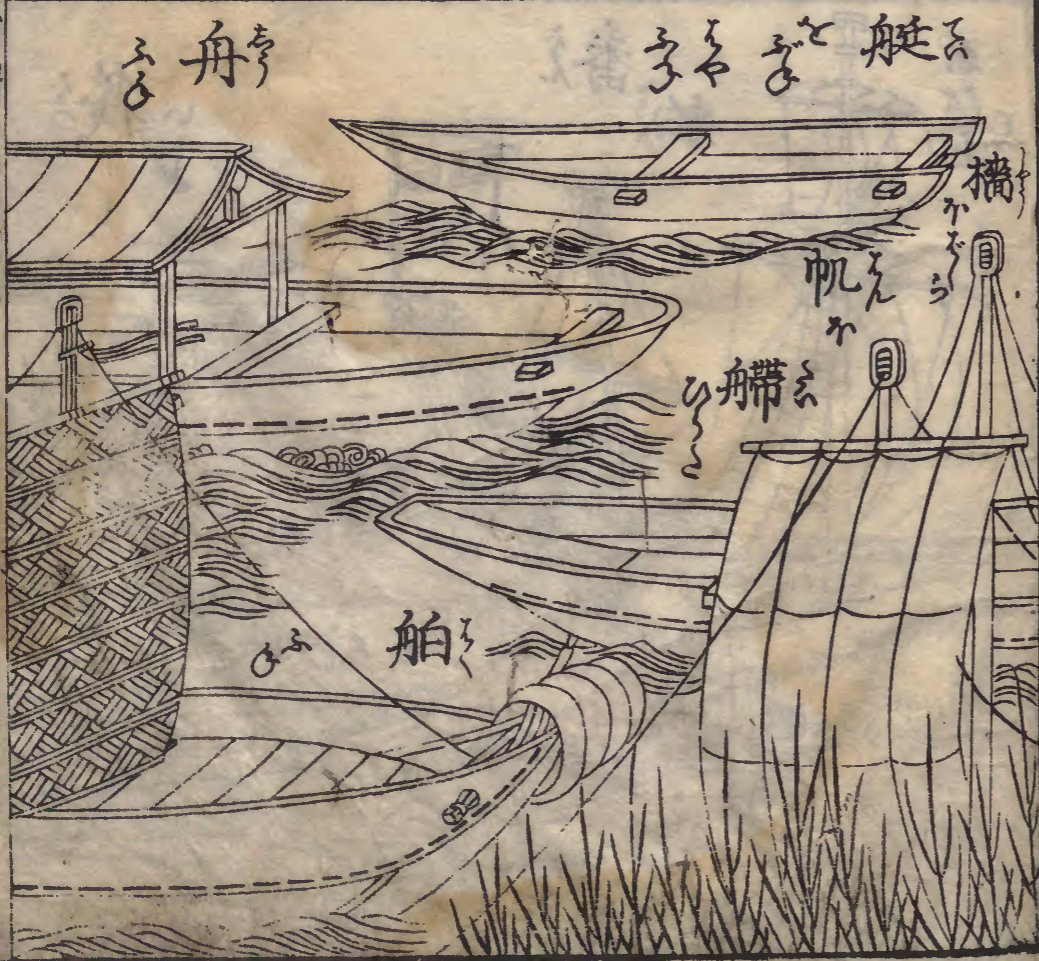 艇 てい
をぶね
はや
ふね
舟 しう
ふね
檣 しやう
ほばしら
帆 はん
ほ
艜 たい
ひらた
舶 はく
ふね